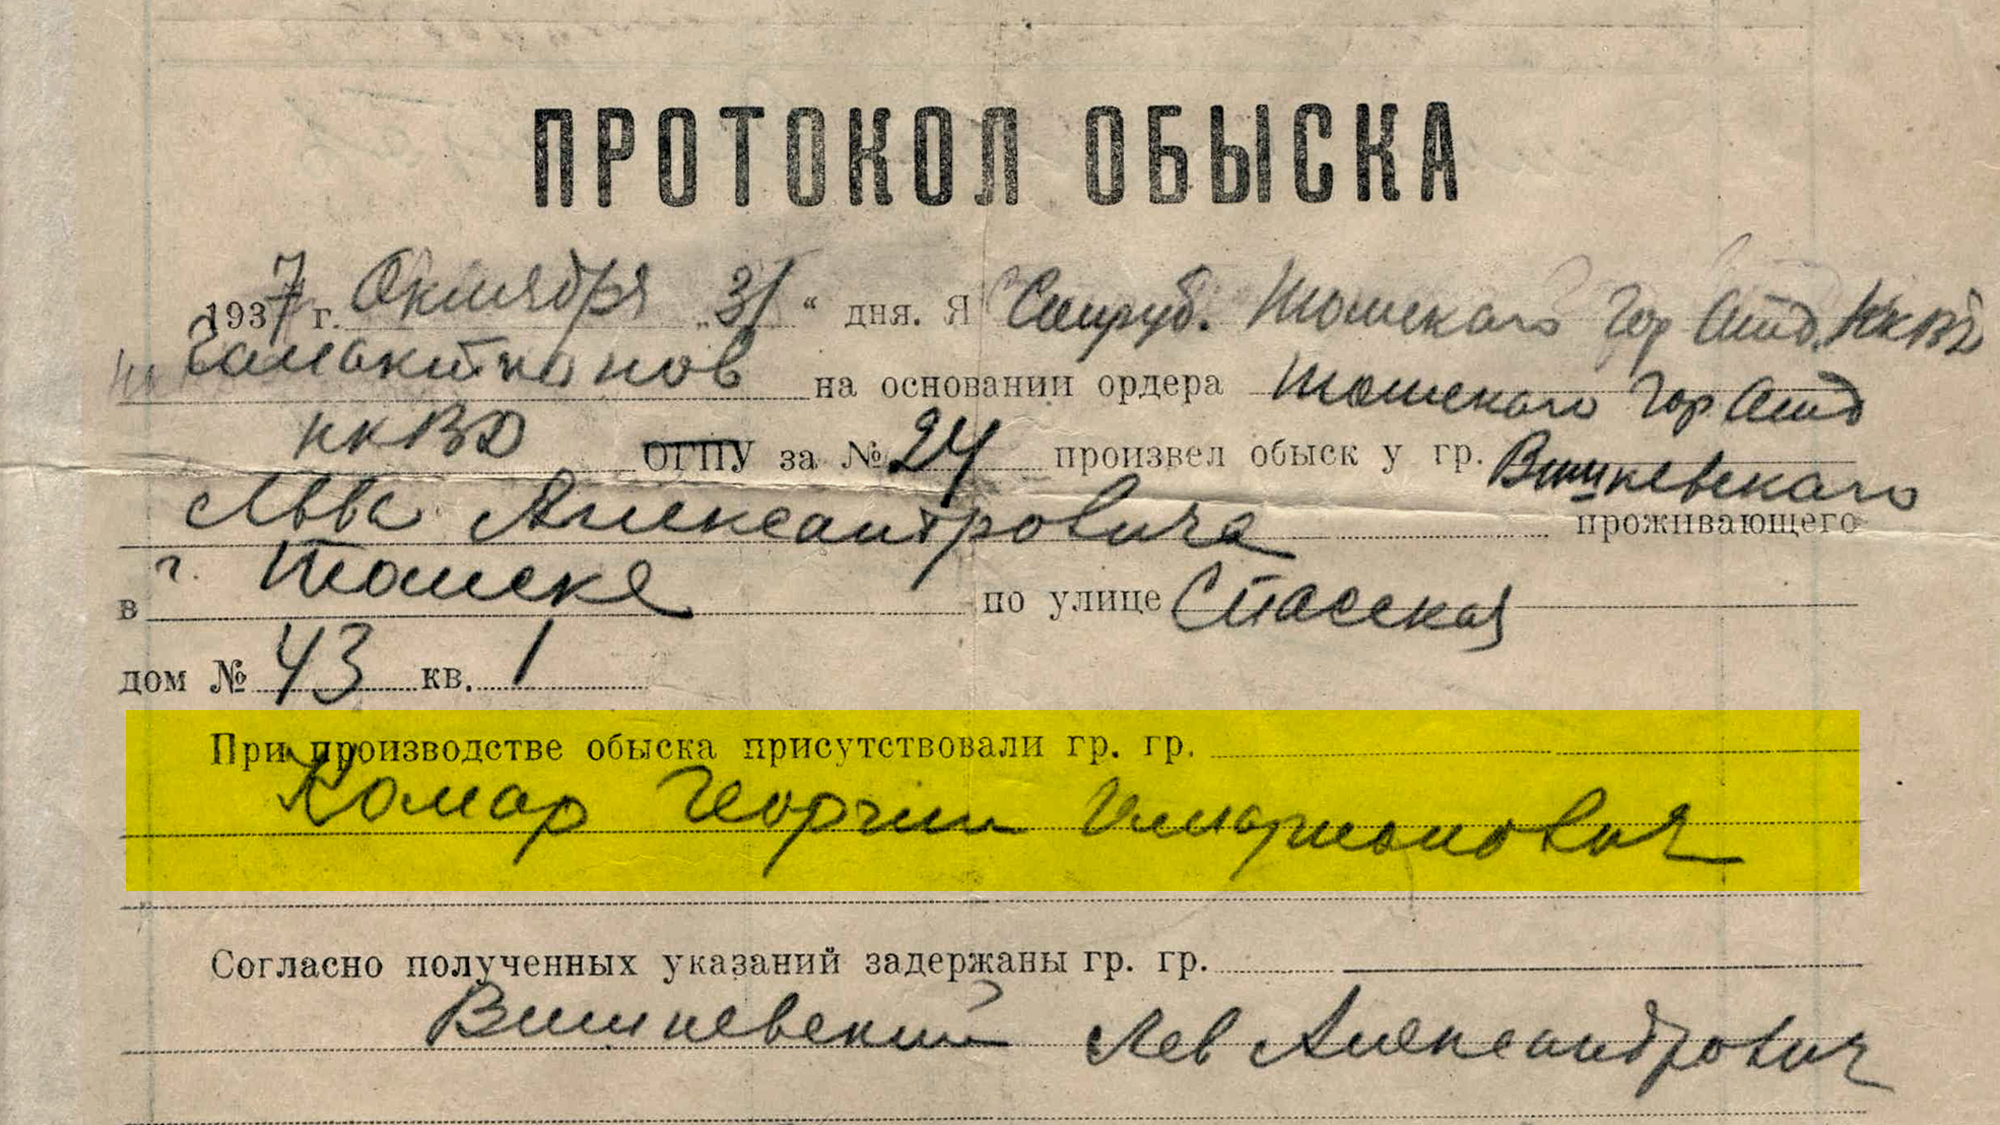 ПРОТОКОЛ ОБЫСКА
1937 г. Октября „31“ дня. Я Сотруд. Томского Гор Отд. НКВД
на основании ордера Томского Гор Отд
НКВД ОГПУ за № 24 произвел обыск у гр. Вишневского
Льва Александровича проживающего
в г. Томске по улице Спасская
дом № 43 кв. 1
При производстве обыска присутствовали гр. гр.
Комар Георгий Иларионович
Согласно полученных указаний задержаны гр. гр.
Вишневский Лев Александрович